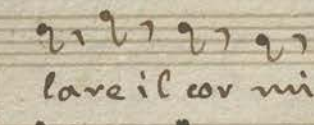 lare il cor mi